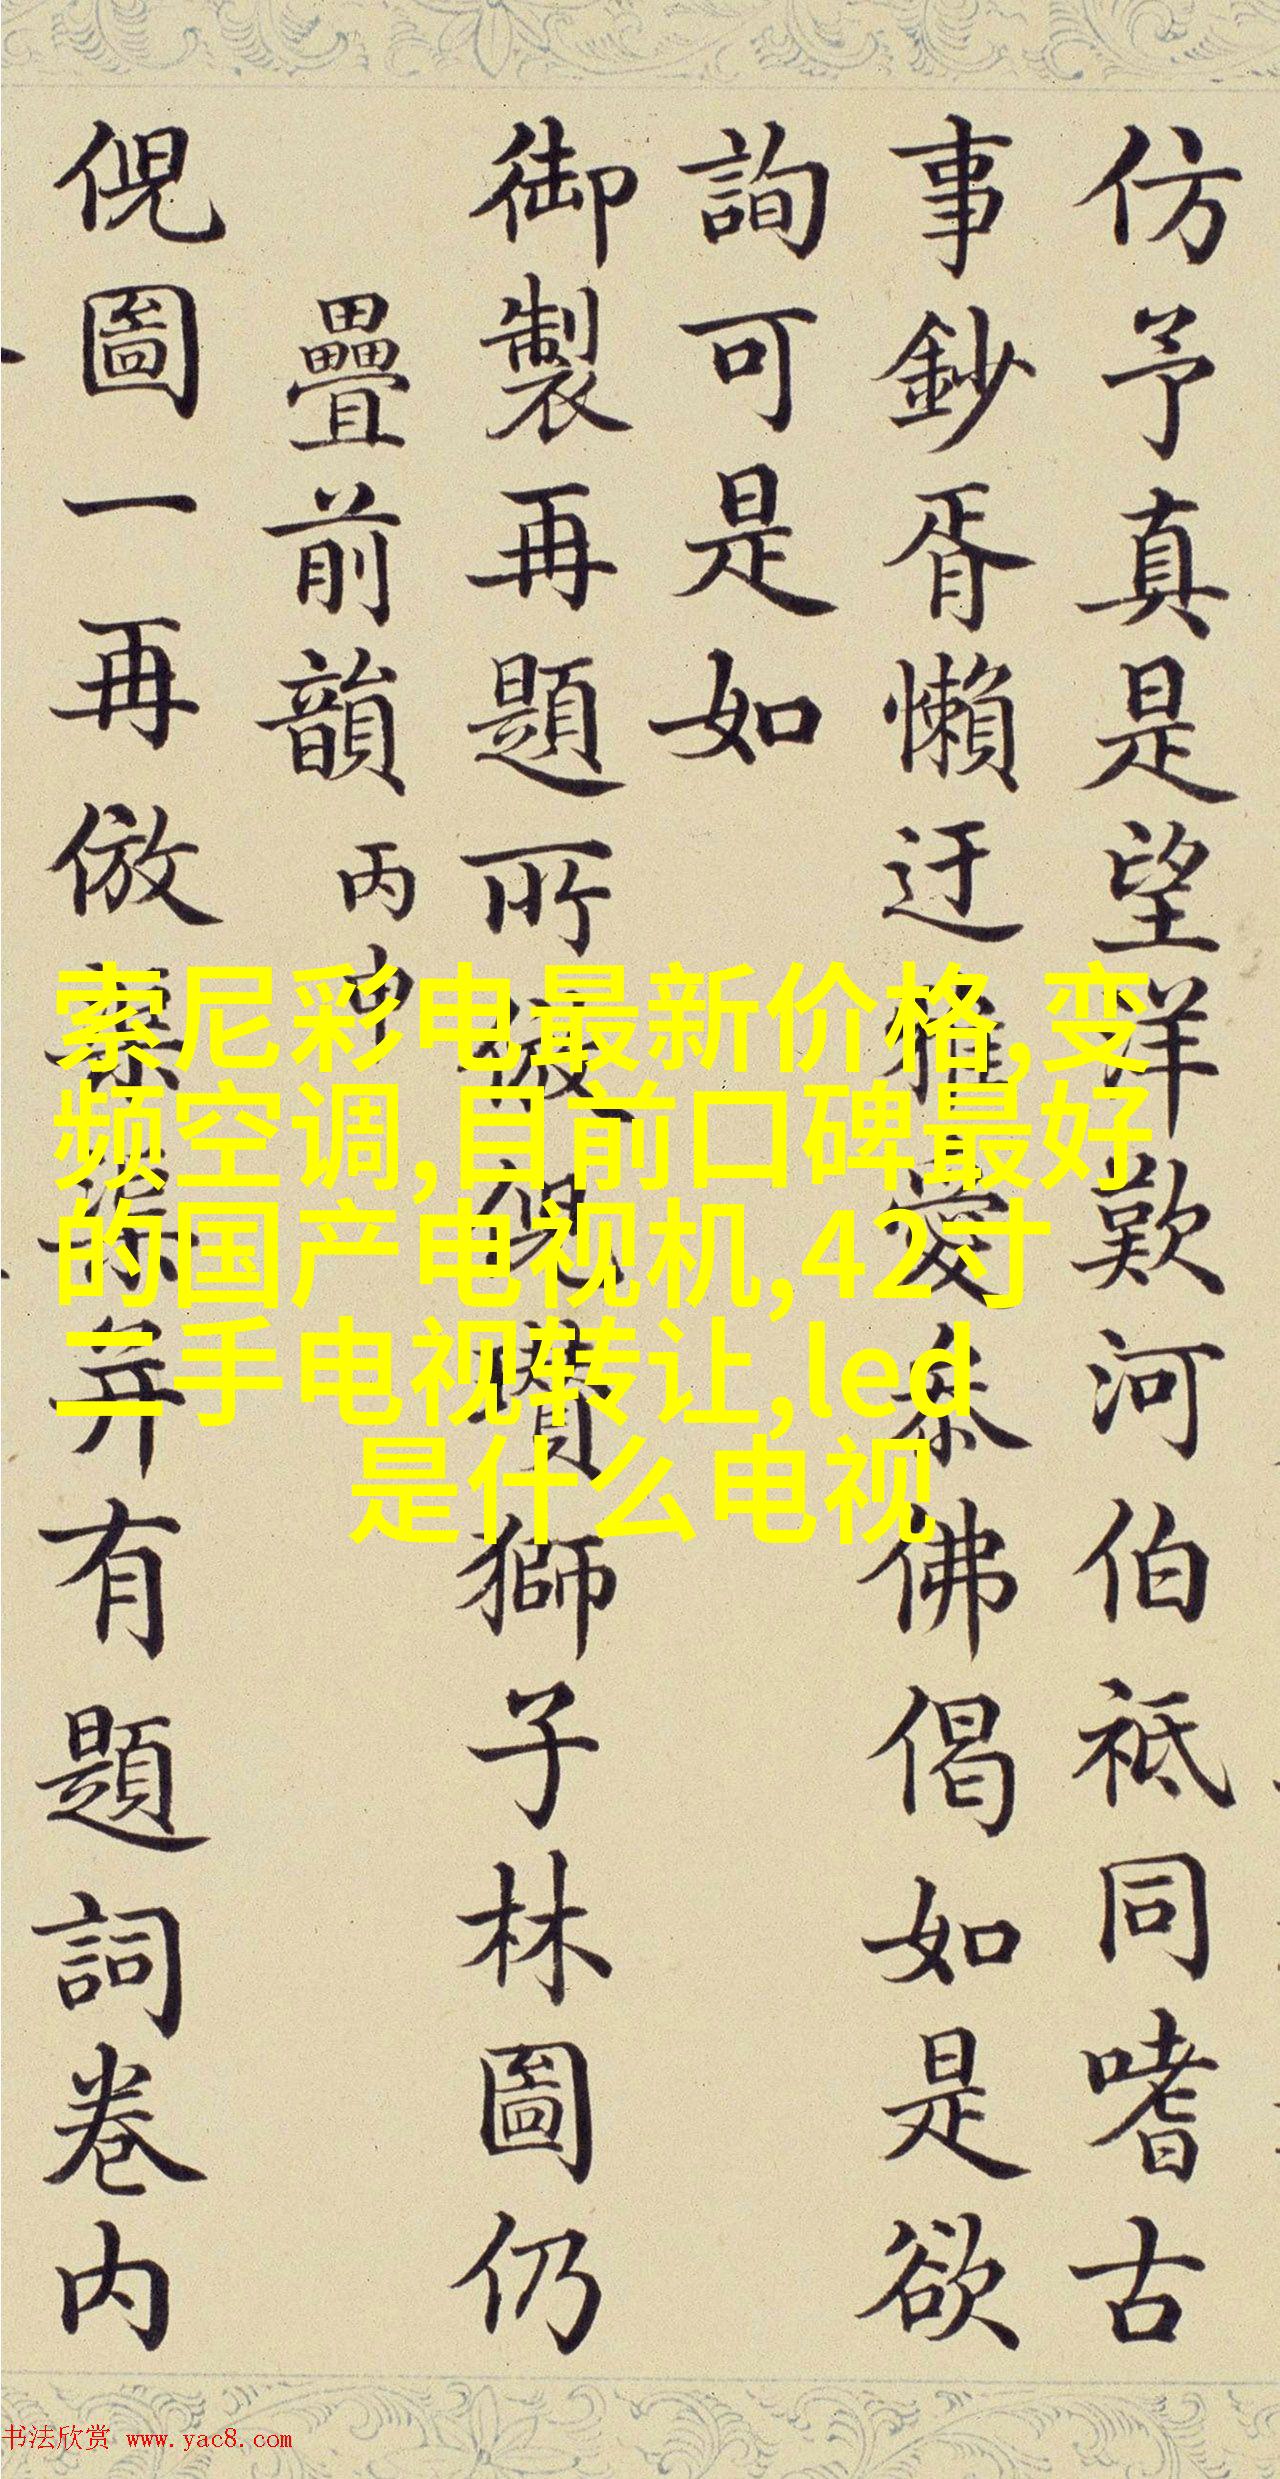 仿予真是望洋歎河伯祇同嗜古
事鈔胥懶迂雅愛佛偈如是欲
詢可是如
御製再題所倣倪瓚獅子林圖仍
疊前韻 丙申
倪圖一再倣弆有題詞卷内
索尼彩电最新价格,变
频空调,目前口碑最好
的国产电视机,42寸
二手电视转让,led
是什么电视
书法欣赏 www.yac8.com